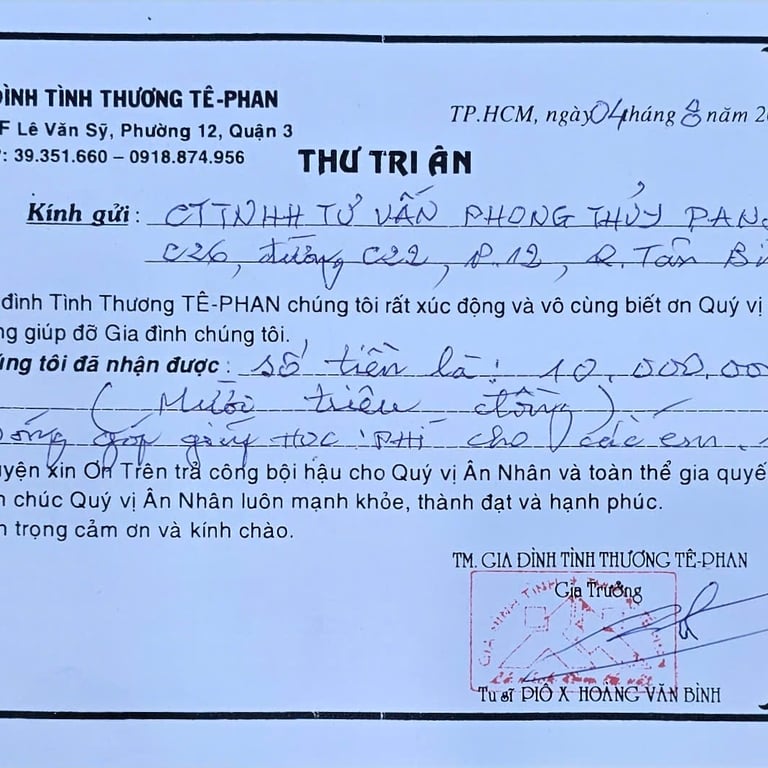 ĐÌNH TÌNH THƯƠNG TÊ-PHAN
F Lê Văn Sỹ, Phường 12, Quận 3
: 39.351.660 – 0918.874.956
TP.HCM, ngày 04 tháng 8 năm 2
THƯ TRI ÂN
Kính gửi : CTTNHH TƯ VẤN PHONG THỦY PAN
C26, đường C22, P.12, Q. Tân B
đình Tình Thương TÊ-PHAN chúng tôi rất xúc động và vô cùng biết ơn Quý vị
ng giúp đỡ Gia đình chúng tôi.
úng tôi đã nhận được : số tiền là: 10.000.00
( Mười triệu đồng )
góp giúp HỌC PHÍ cho các em.
uyện xin Ơn Trên trả công bội hậu cho Quý vị Ân Nhân và toàn thể gia quyế
chúc Quý vị Ân Nhân luôn mạnh khỏe, thành đạt và hạnh phúc.
n trọng cảm ơn và kính chào.
TM. GIA ĐÌNH TÌNH THƯƠNG TÊ-PHAN
Gia Trưởng
GIA ĐÌNH TÌNH
Tu sĩ PIÔ X HOÀNG VĂN BÌNH